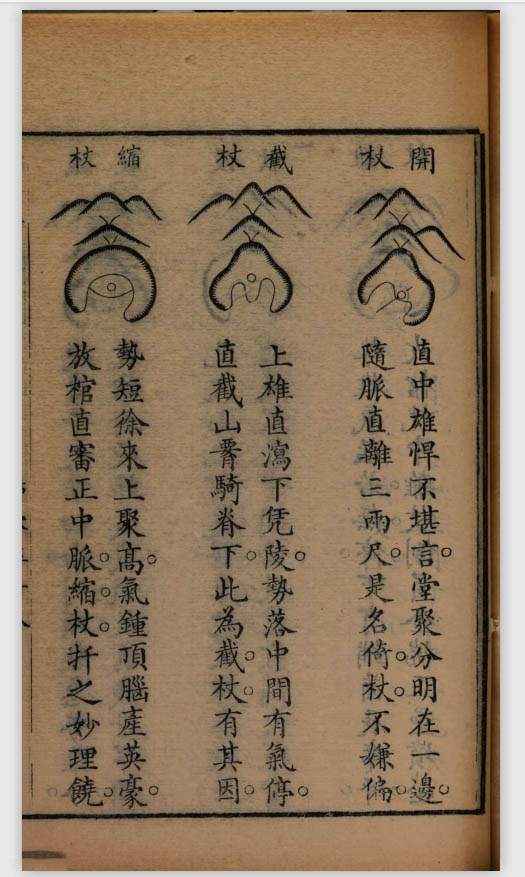 開杖
直中雄悍不堪言○堂聚分明在一邊○
隨脈直離三兩尺○是名倚○杖○不嫌偏○
截杖
上雄直瀉下凭陵○勢落中間有氣停○
直截山騎脊下○此為截○杖○有其因○
縮杖
勢短徐來上聚高○氣鍾頂腦產英豪○
放棺直審正中脈○縮○杖○扦之妙理饒○